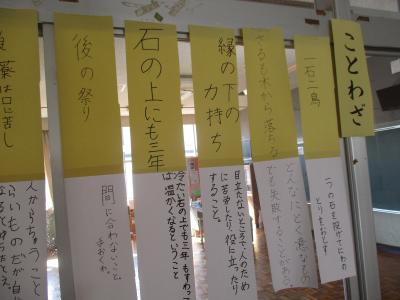 ことわざ
一石二鳥
一つの石を投げて二わの
とりをおとす
さるも木から落ちる
どんなにとく意なもの
でも失敗することがある
縁の下の
力持ち
目立たないところで、人のため
に苦労したり、役に立ったり
すること。
石の上にも三年
冷たい石の上でも三年もすわって
は温かくなるということ
後の祭り
間に合わないこと。
手おくれ。
良薬は口に苦し
人からちゅうこと